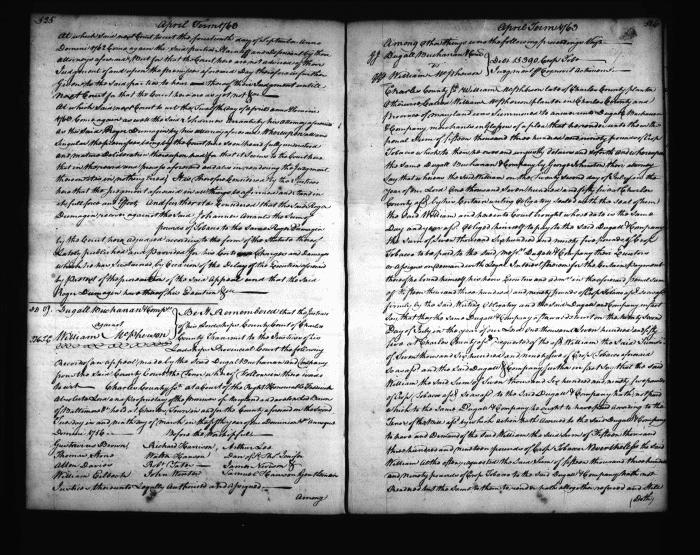 525
April Term 1763
At which said next Court to wit the fourteenth day of September Anno
Domini 1762 Came again the said parties Plaintiff and Defendant by their
attorneys aforesaid, But for that the Court here are not advised of their
Judgment of and upon the premises aforesaid Day therefore is further
Given to the said parties to here thereof their Judgment untill
next Court for that the Court here are not yet &c
At which said next Court to wit the Twelfth day of April Anno Domini
1763 Came again as well the said Johannes Arrants by his attorney aforesaid
as the said Roger Dunagin by his attorney aforesaid Whereupon all and
Singular the premises being by the Court here seen heard fully understood
and Mature Deliberation thereupon had for that it seems to the Court here
that in the proceedings process aforesaid and also in rendering the Judgment
thereon that in nothing there is It is therefore Considered by the Justices
here that the Judgment aforesaid in all things be affirmed and stand in
its full force and Effect, And further it is Considered that the said Roger
Dunagin recover against the said Johannes Arrants the Sum of
pounds of Tobacco to the same Roger Dunagin
by the Court here adjudged according to the form of the Statute thereof
Lately published and Provided for his Costs Charges and Damages
which he has Sustained by Occasion of the Delay of the Execution aforesaid
by Pretext of the prosecution of the said Appeal and that the said
Roger Dunagin have thereof his Execution &c
Dugall Buchanan & Compy
against
William McPherson
Be it Remembered that the Justices
of his Lordships County Court of Charles
County Transmit to the Justices of his
Lordships Provincial Court the following
Record of an appeal made by the said Dugall Buchanan and Company
from the said County Court the Tenor whereof followeth in these words
to wit Charles County Ss At a Court of the Right Honourable Frederick
Absolute Lord and Proprietary of the Province of Maryland and Avalon Lord Baron
of Baltimore &c held at Charles Town in and for the County aforesaid on the Second
Tuesday in and ninth day of March in the fifth year of his Dominion &c Annoque
Domini 1756 Before the Worshipfull
Gustavus Brown Richard Harrison, Arthur Lee
Thomas Stone Walter Hanson Dan of St Thos Jenifer
Allen Davies Robt Yates James Nivison &
William Eilbeck John Winter Samuel Hanson Gentlemen
Justices thereunto Legally Authorized and Assigned
Among
April Term 1763
Among other things was the following proceedings Viz
Dugall Buchanan & Comp
vs
William McPherson
Debt 15390 Crop Tobo
Judgment of Cognovit Actionem
Charles County Ss William McPherson late of Charles County planter
otherwise Called William McPherson planter in Charles County and
Province of Maryland was Summoned to answer unto Dugall Buchanan
& Company merchants in Glasgow of a plea that he render unto them the
Sum of fifteen thousand three hundred and ninety pounds of Crop
Tobacco which to them he owes and unjustly detains and so forth and whereupon
the Same Dugall Buchanan & Company by George Johnston their attorney
Say that whereas the said William on the Twenty second day of July in the
year of our Lord One thousand Seven hundred and fifty five at Charles
County afd by his Certain writing Obligatory Sealed with the Seal of him
the said William and here into Court brought whose date is the Same
Day and year afd Obliged himself to pay to the said Dugall & Company
the Sum of Seven thousand Six hundred and ninety five pounds of Crop
Tobacco to be paid to the said Dugall & Company their Executors
or Assigns on demand with Legal Interest thereon for the Certain payment
thereof he bound himself his heirs Executors and admrs in the aforesaid penal sum
of fifteen thousand three hundred and ninety pounds of Crop Tobacco
firmly by the said Writing Obligatory and the said Dugall and Company in fact
Say, that they the Same Dugall & Company afterwards to wit on the Twenty Second
Day of July in the year of our Lord One thousand Seven hundred and fifty
five at Charles County afd requested of the afd William the said Sum
of Seven thousand Six hundred and Ninety five of Crop Tobacco aforesaid
as afd and the said Dugall & Company further in fact Say that the said
William the said Sum of Seven thousand Six hundred and ninety five pounds
of Crop Tobacco as afd to the said Dugall & Company hath not paid
which to the Same Dugall & Company he ought to have paid according to the
Tenor of the afd by which action hath Accrued to the said Dugall & Company
to have and Demand of the said William the said Sum of Fifteen thousand
three hundred and Nineteen pounds of Crop Tobacco Nevertheless the said
William altho often requested the said Sum of fifteen thousand three hundred
and Ninety pounds of Crop Tobacco to the said Dugall & Company hath not
rendered but the same to them to render hath altogether refused and Still
(Doth)